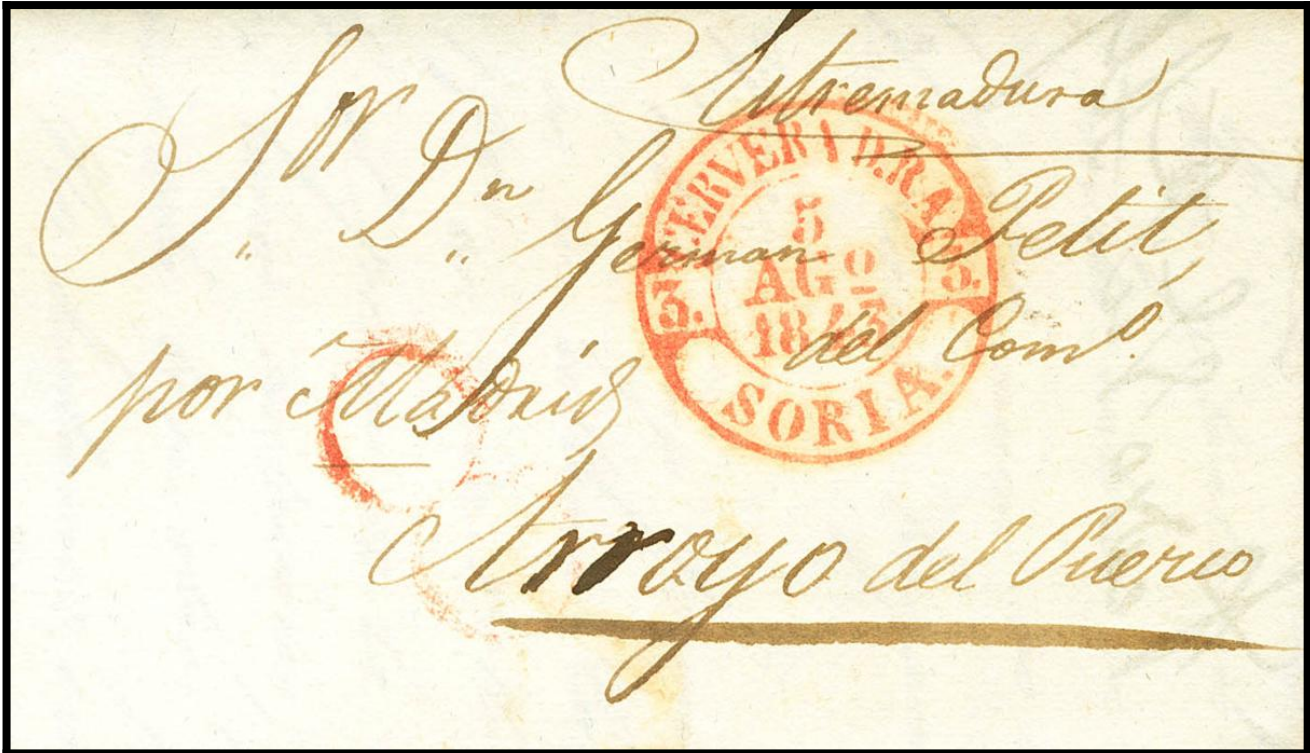 Estremadura
S.or D.n German Petit,
del Com.o
por Madrid
Arroyo del Puerco
CERVERA D.R.A.
3. 3.
5
AGº
1843
SORIA.